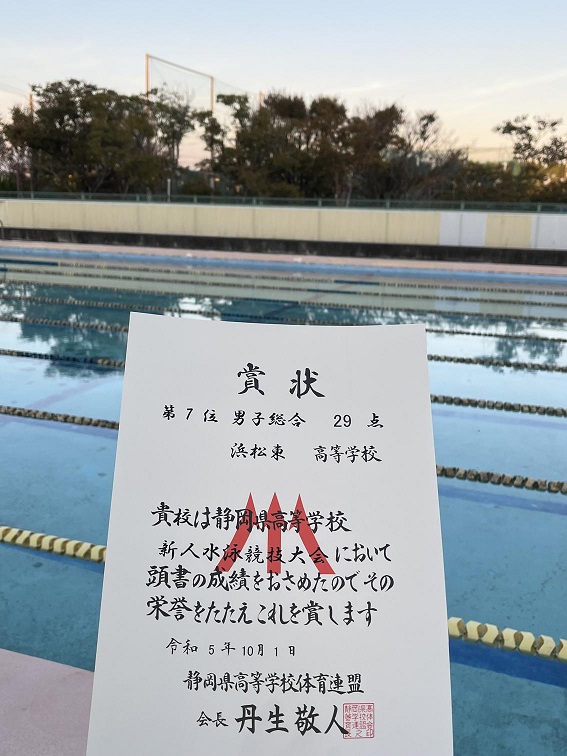 賞状
第7位 男子総合 29 点
浜松東 高等学校
貴校は静岡県高等学校
新人水泳競技大会において
頭書の成績をおさめたのでその
栄誉をたたえこれを賞します
令和5年10月1日
静岡県高等学校体育連盟
会長 丹生敬人